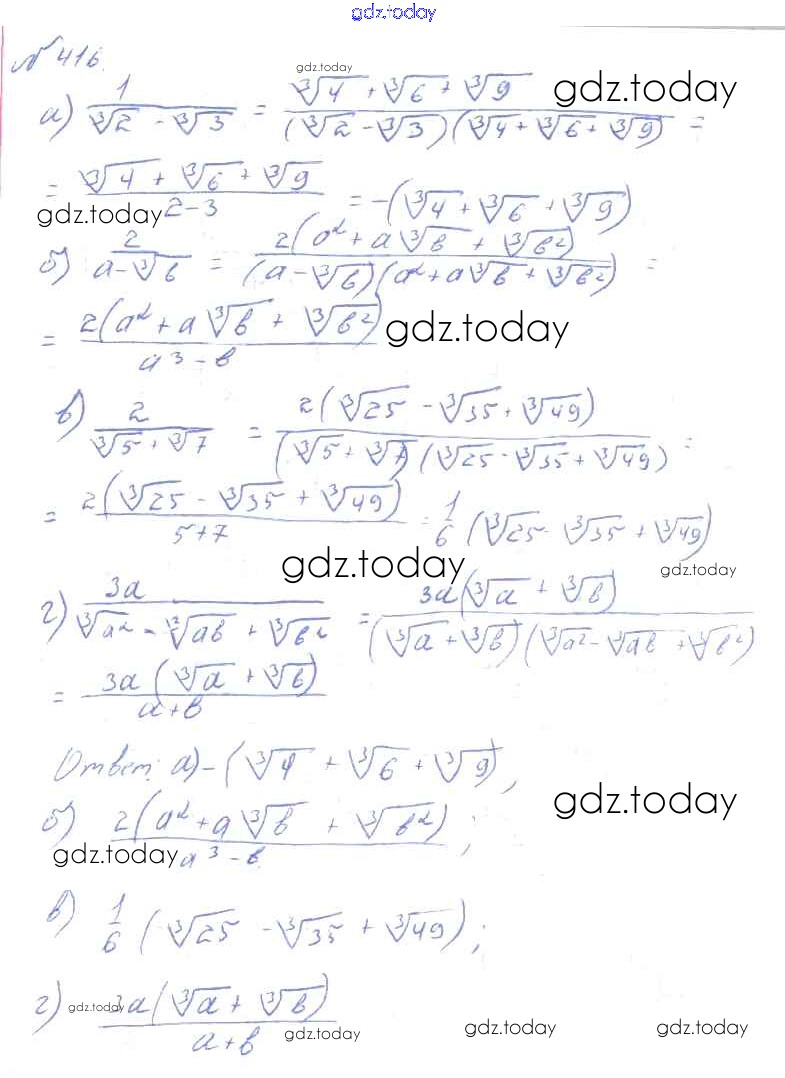 gdz.today
№ 416.
gdz.today
а) 1/(∛2 - ∛3) = (∛4 + ∛6 + ∛9)/((∛2 - ∛3)(∛4 + ∛6 + ∛9)) = gdz.today
= (∛4 + ∛6 + ∛9)/(2-3) = -(∛4 + ∛6 + ∛9)
gdz.today
б) 2/(a - ∛b) = 2(a² + a∛b + ∛b²)/((a - ∛b)(a² + a∛b + ∛b²)) =
= 2(a² + a∛b + ∛b²)/(a³ - b) gdz.today
в) 2/(∛5 + ∛7) = 2(∛25 - ∛35 + ∛49)/((∛5 + ∛7)(∛25 - ∛35 + ∛49)) =
= 2(∛25 - ∛35 + ∛49)/(5+7) = 1/6 (∛25 - ∛35 + ∛49)
gdz.today gdz.today
г) 3a/(∛a² - ∛ab + ∛b²) = 3a(∛a + ∛b)/((∛a + ∛b)(∛a² - ∛ab + ∛b²))
= 3a(∛a + ∛b)/(a+b)
Ответ: а) -(∛4 + ∛6 + ∛9),
gdz.today
б) 2(a² + a∛b + ∛b²)/(a³ - b);
gdz.today
в) 1/6 (∛25 - ∛35 + ∛49);
г) 3a(∛a + ∛b)/(a+b)
gdz.today
gdz.today gdz.today gdz.today